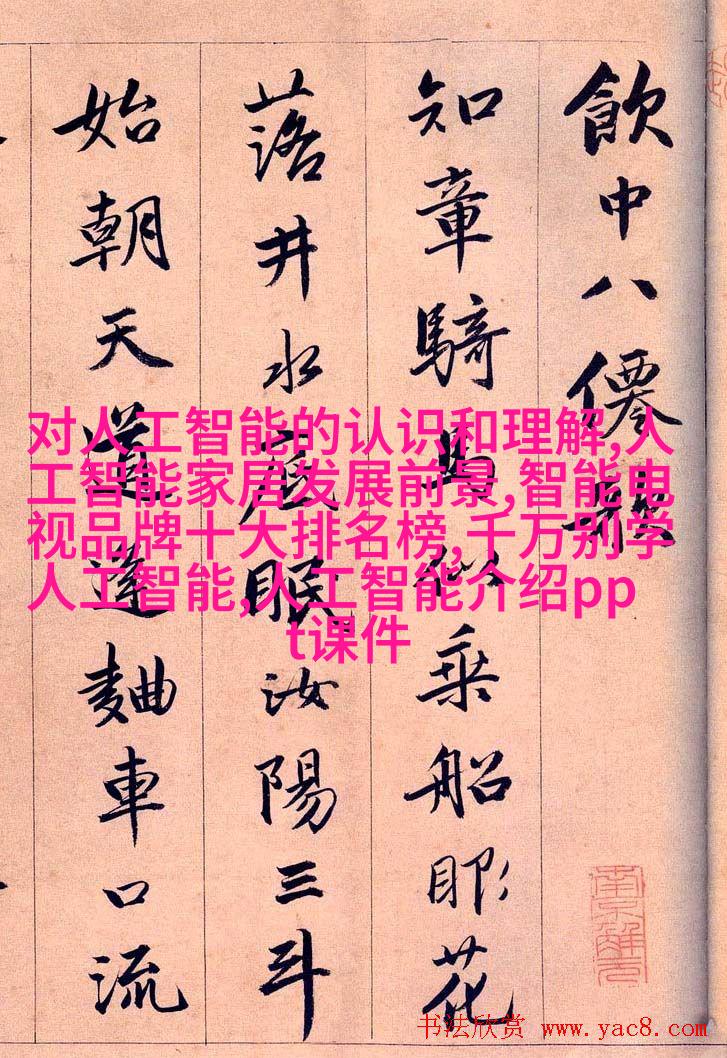 飲中八僊歌
知章騎馬似乗船眼花
落井水底眠汝陽三斗
始朝天道逢麯車口流
对人工智能的认识和理解,人
工智能家居发展前景,智能电
视品牌十大排名榜,千万别学
人工智能,人工智能介绍pp
t课件
南京解元
书法欣赏 www.yac8.com